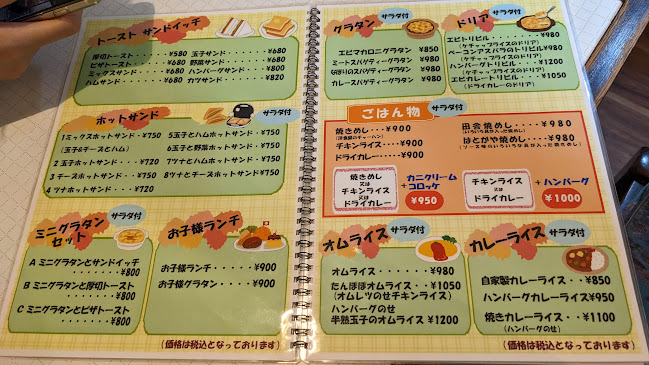 トースト サンドイッチ
厚切トースト・・・・¥580 玉子サンド・・・・・・¥680
ピザトースト・・・・¥680 野菜サンド・・・・・・¥680
ミックスサンド・・・・¥680 ハンバーグサンド・・¥800
ハムサンド・・・・・¥680 カツサンド・・・・・¥820
ホットサンド
サラダ付
1 ミックスホットサンド・・¥750
(玉子&チーズとハム)
2 玉子ホットサンド・・・¥720
3 チーズホットサンド・・¥750
4 ツナホットサンド・・・¥720
5 玉子とハムホットサンド・・¥750
6 玉子と野菜ホットサンド・・¥750
7 ツナとハムホットサンド・・¥750
8 ツナとチーズホットサンド・¥750
ミニグラタン
セット
サラダ付
A ミニグラタンとサンドイッチ
・・・・・・・・¥800
B ミニグラタンと厚切トースト
・・・・・・・・¥800
C ミニグラタンとピザトースト
・・・・・・・・¥800
お子様ランチ
お子様ランチ・・・・・¥900
お子様グラタン・・・・¥900
(価格は税込となっております)
グラタン
サラダ付
エビマカロニグラタン ¥850
ミートスパゲティーグラタン ¥980
スパゲティーグラタン ¥980
カレースパゲティーグラタン ¥980
ドリア
サラダ付
エビトリピル・・・・・・・¥980
(ケチャップライスのドリア)
ベーコンアスパラのトリピル・¥980
(ケチャップライスのドリア)
ハンバーグトリピル・・・¥1200
(ケチャップライスのドリア)
エビカレートリピル・・・¥1050
(ドライカレーのドリア)
ごはん物
サラダ付
焼きめし・・・・¥900
チキンライス・・・¥900
ドライカレー・・・¥900
田舎焼めし・・・・・¥980
はとがや焼めし・・・・¥980
焼きめし
又は
チキンライス
又は
ドライカレー
+カニクリーム
コロッケ
¥950
チキンライス
又は
ドライカレー
+ハンバーグ
¥1000
オムライス
サラダ付
オムライス・・・・・・¥980
たんぽぽオムライス・・¥1050
(オムレツのせチキンライス)
ハンバーグのせ
半熟玉子のオムライス ¥1200
カレーライス
サラダ付
自家製カレーライス・・¥850
ハンバーグカレーライス¥950
焼きカレーライス・・・¥1100
(ハンバーグのせ)
(価格は税込となっております)